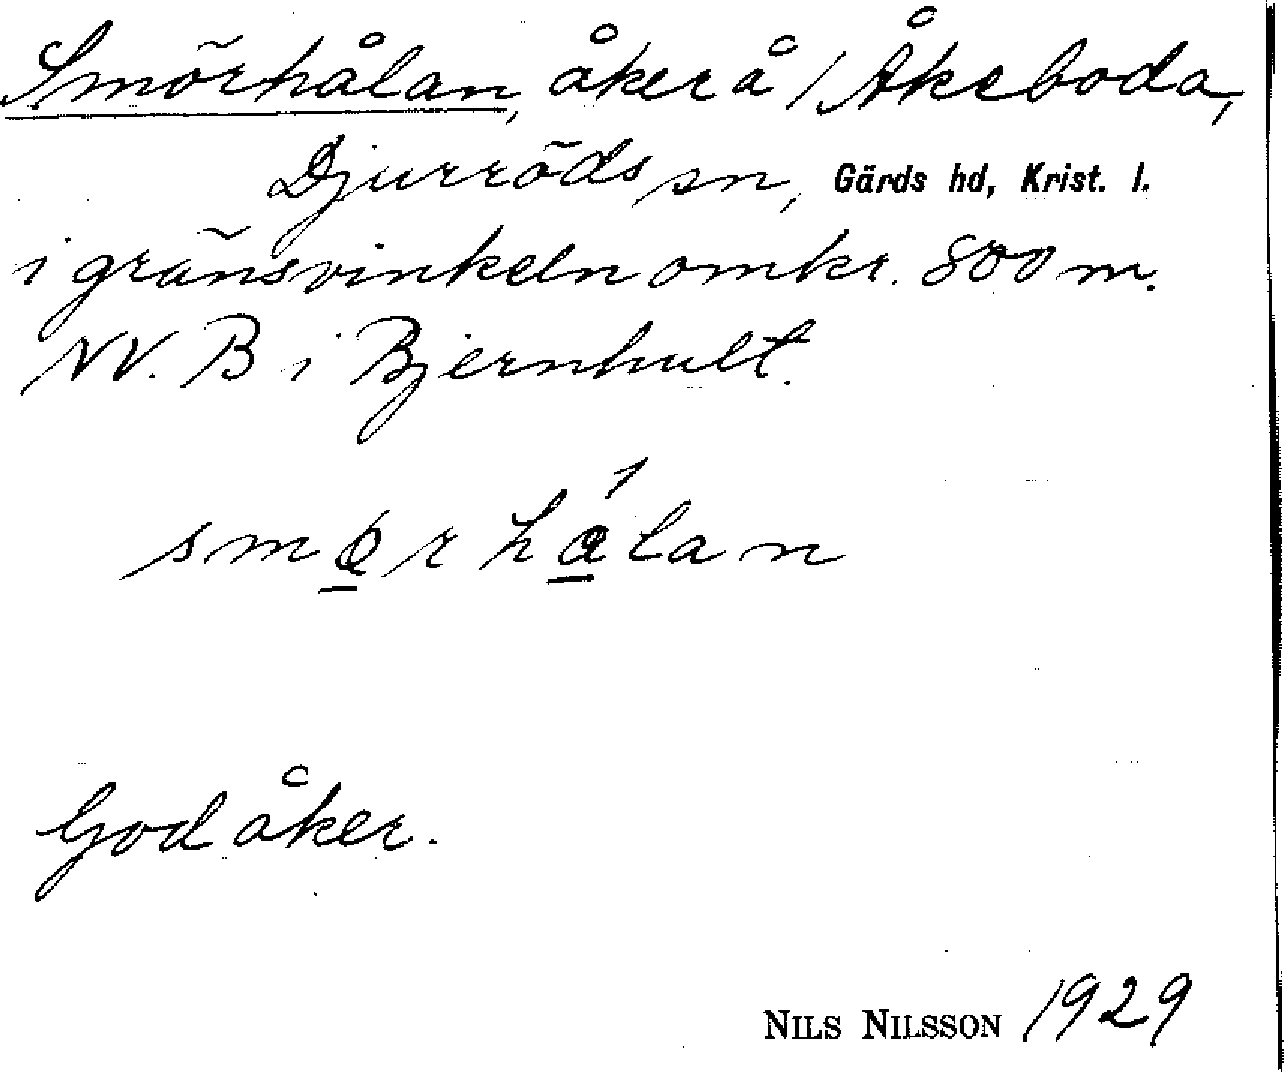 Smörhålan, åker å 1 Åkeboda,
Djurröds sn, Gärds hd, Krist. l.
i gränsvinkeln omkr. 800 m.
NV. B i Bjernhult.
smørhålan
God åker.
NILS NILSSON 1929